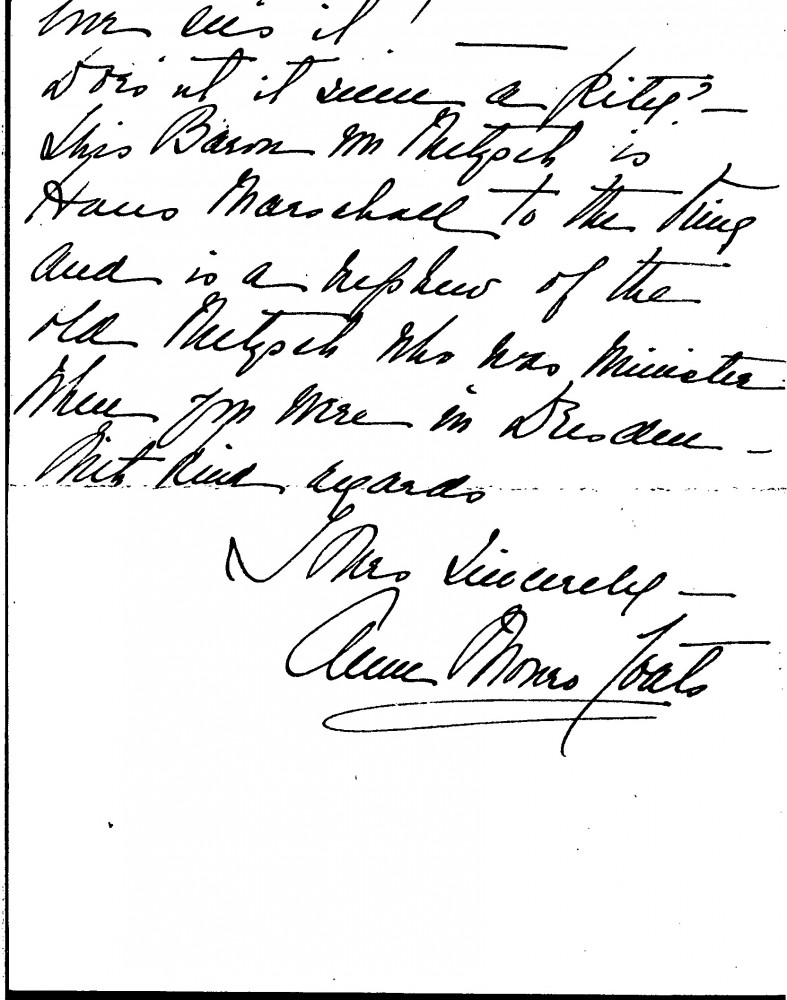 it!
Does'nt it seem a pity? —
This Baron von Metzsch is
Haus Marschall to the King
and is a nephew of the
old Metzsch who was Minister
when you were in Dresden —
With kind regards
Yours Sincerely —
Anne Monro